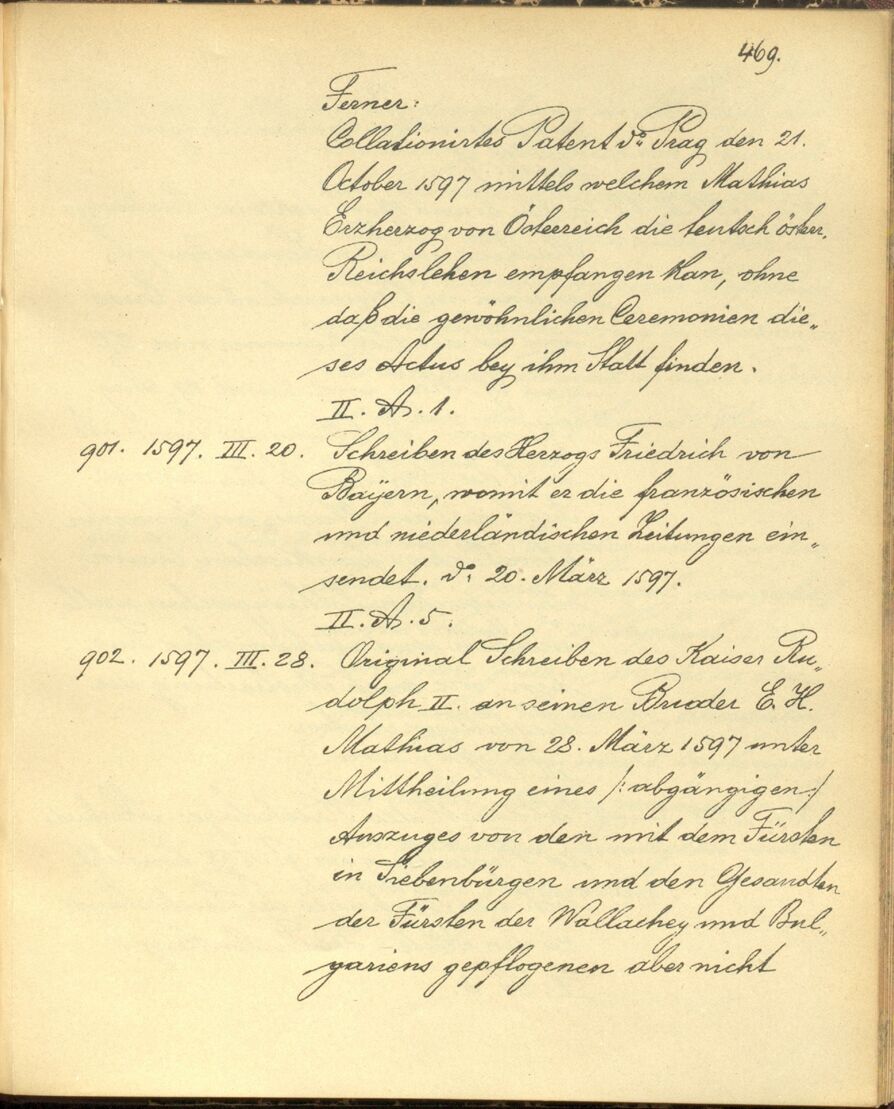 469.
Ferner:
Collationirtes Patent do: Prag den 21.
October 1597 mittels welchem Mathias
Erzherzog von Österreich die teutsch österr.
Reichslehen empfangen kan, ohne
daß die gewöhnlichen Ceremonien die„
ses Actus bey ihm Statt finden.
II. A. 1.
901. 1597. III. 20. Schreiben des Herzogs Friedrich von
Bayern, womit er die französischen
und niederländischen Zeitungen ein„
sendet. do: 20. März 1597.
II. A. 5.
902. 1597. III. 28. Original Schreiben des Kaiser Ru„
dolph II. an seinen Bruder E. H.
Mathias von 28. März 1597 unter
Mittheilung eines /: abgängigen :/
Auszuges von den mit dem Fürsten
in Siebenbürgen und den Gesandten
der Fürsten der Wallachey und Bul„
gariens gepflogenen aber nicht